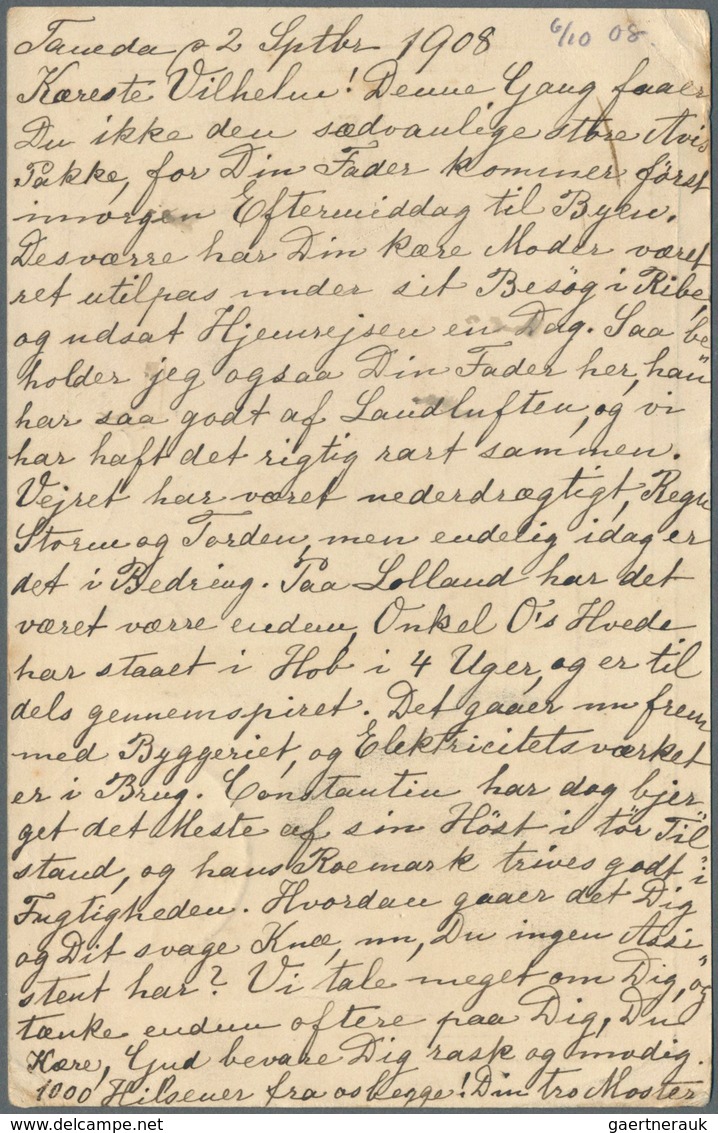 2 Sptbr 1908 6/10 08.
Kæreste Vilhelm! Denne Gang faaer
Du ikke den sædvanlige store Avis
Pakke, for Din Fader kommer først
imorgen Eftermiddag til Byen.
Desværre har Din kære Moder været
ret utilpas under sit Besøg i Ribe,
og udsat Hjemrejsen en Dag. Saa be
holder jeg ogsaa Din Fader her, han
har saa godt af Landluften, og vi
har haft det rigtig rart sammen.
Vejret har været nederdrægtigt, Regn
Storm og Torden, men endelig idag er
det i Bedring. Paa Lolland har det
været værre endnu, Onkel O's Hvede
har staaet i Hob i 4 Uger, og er til
dels gennemspiret. Det gaaer nu frem
med Byggeriet, og Elektricitetsværket
er i Brug. Constantin har dog bjer"
get det Meste af sin Höst i tör Til"
stand, og hans Roemark trives godt i
Fugtigheden. Hvordan gaaer det Dig
og Dit svage Knæ, nu, Du ingen Assi"
stent har? Vi tale meget om Dig, og
tænke endnu oftere paa Dig, Du
Kære, Gud bevare Dig rask og modig.
1000 Hilsener fra os begge! Din tro Moster
gaertnerauk